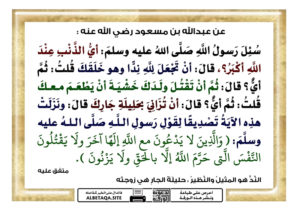 عن عبدالله بن مسعود رضي الله عنه :
سُئِلَ رَسولُ اللهِ صَلَّى اللهُ عليه وسلم: أَيُّ الذَّنْبِ عِنْدَ
اللهِ أَكْبَرُ؟، قالَ: أَنْ تَجْعَلَ لِلَّهِ نِدًّا وهو خَلَقَكَ قُلتُ: ثُمَّ
أَيٌّ؟ قالَ: ثُمَّ أَنْ تَقْتُلَ ولَدَكَ خَشْيَةَ أَنْ يَطْعَمَ معكَ
قُلتُ: ثُمَّ أَيٌّ؟ قالَ: أَنْ تُزَانِيَ بحَلِيلَةِ جَارِكَ قالَ: ونَزَلَتْ
هذِه الآيَةُ تَصْدِيقًا لِقَوْلِ رَسولِ اللَّهِ صَلَّى اللهُ عليه
وسلَّمَ: ( وَالَّذِينَ لا يَدْعُونَ مع اللَّهِ إِلَهًا آخَرَ ولَا يَقْتُلُونَ
النَّفْسَ الَّتي حَرَّمَ اللَّهُ إلَّا بالحَقِّ ولَا يَزْنُونَ ).
متفق عليه
النِّدُّ هو المثيلُ والنَّظيرُ ، حليلة الجار هي زوجته
احرص على طباعة
ونشر هذه الورقة
ALBETAQA.SITE